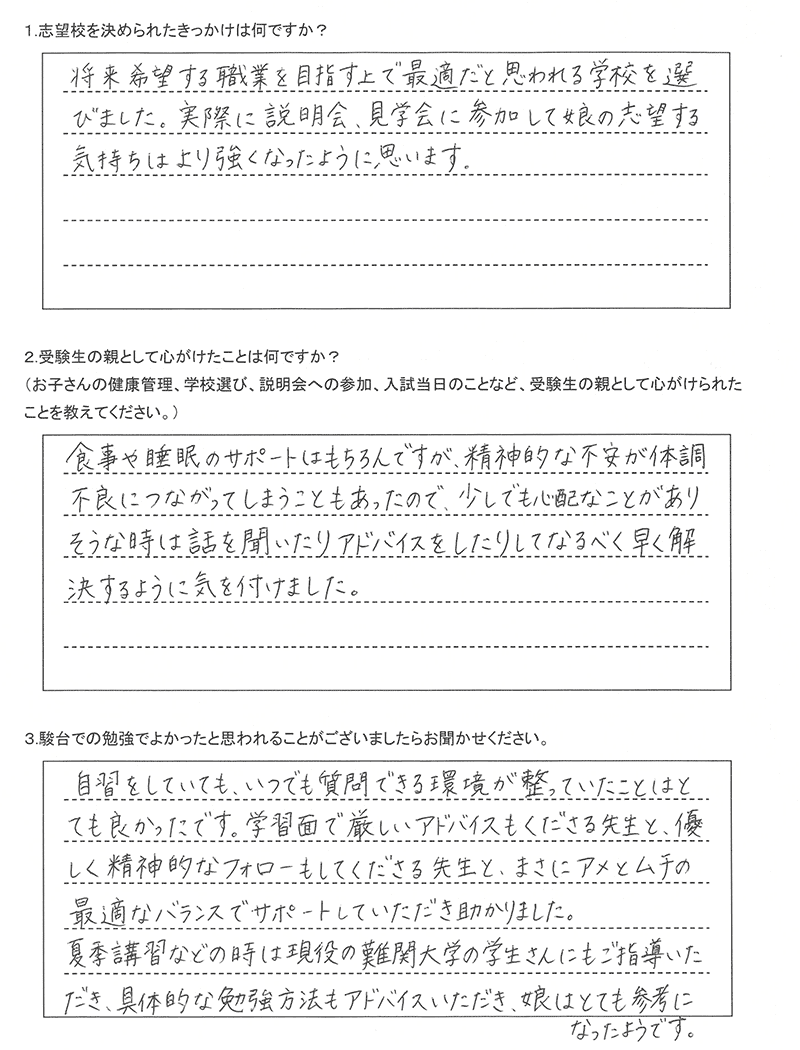 1.志望校を決められたきっかけは何ですか？
将来希望する職業を目指す上で最適だと思われる学校を選
びました。実際に説明会、見学会に参加して娘の志望する
気持ちはより強くなったように思います。
2.受験生の親として心がけたことは何ですか？
（お子さんの健康管理、学校選び、説明会への参加、入試当日のことなど、受験生の親として心がけられた
ことを教えてください。）
食事や睡眠のサポートはもちろんですが、精神的な不安が体調
不良につながってしまうこともあったので、少しでも心配なことがあり
そうな時は話を聞いたりアドバイスをしたりしてなるべく早く解
決するように気を付けました。
3.駿台での勉強でよかったと思われることがございましたらお聞かせください。
自習をしていても、いつでも質問できる環境が整っていたことはと
ても良かったです。学習面で厳しいアドバイスもくださる先生と、優
しく精神的なフォローもしてくださる先生と、まさにアメとムチの
最適なバランスでサポートしていただき助かりました。
夏季講習などの時は現役の難関大学の学生さんにもご指導いた
だき、具体的な勉強方法もアドバイスいただき、娘はとても参考に
なったようです。